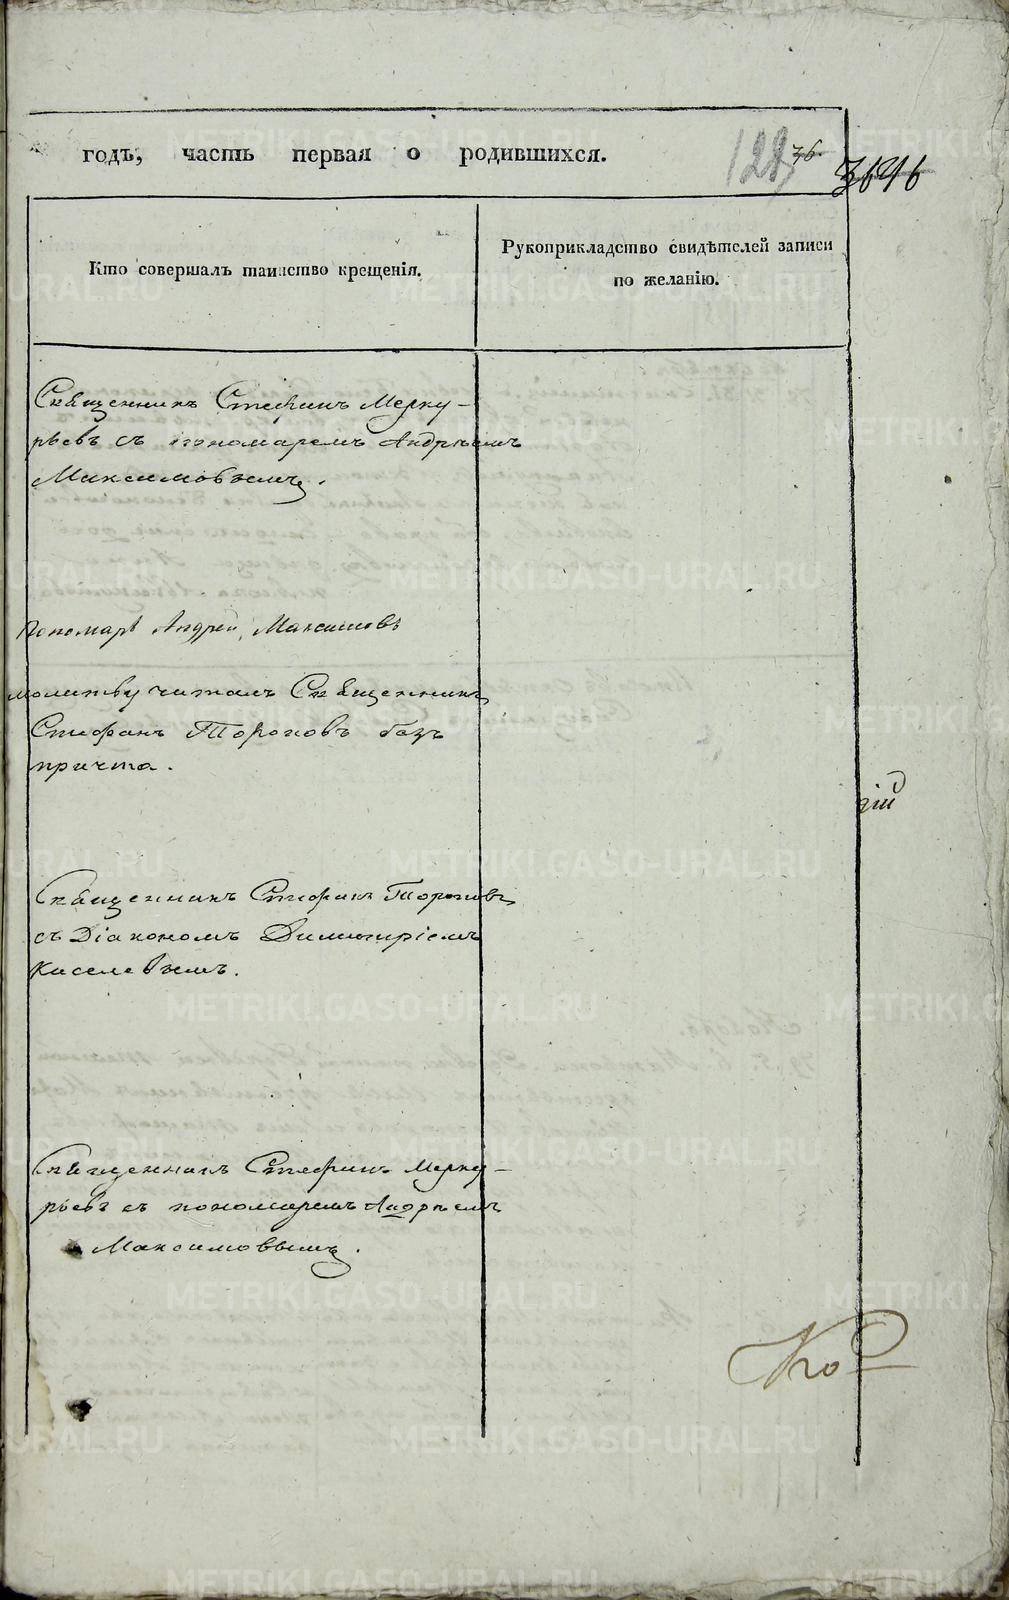 годъ, часть первая о родившихся.
128
36.
Кто совершалъ таинство крещенія.
Рукоприкладство свидѣтелей записи
по желанію.
Священникъ Стефанъ Мерку-
рьевъ съ пономаремъ Андрѣемъ
Максимовымъ.
Пономарь Андрей Максимовъ
молитву читалъ Священникъ
Стефанъ Тороповъ безъ
причта.
Священникъ Стефанъ Тороповъ
съ Діакономъ Димитріемъ
Киселевымъ.
Священникъ Стефанъ Мерку-
рьевъ съ пономаремъ Андрѣемъ
Максимовымъ.
METRIKI.GASO-URAL.RU